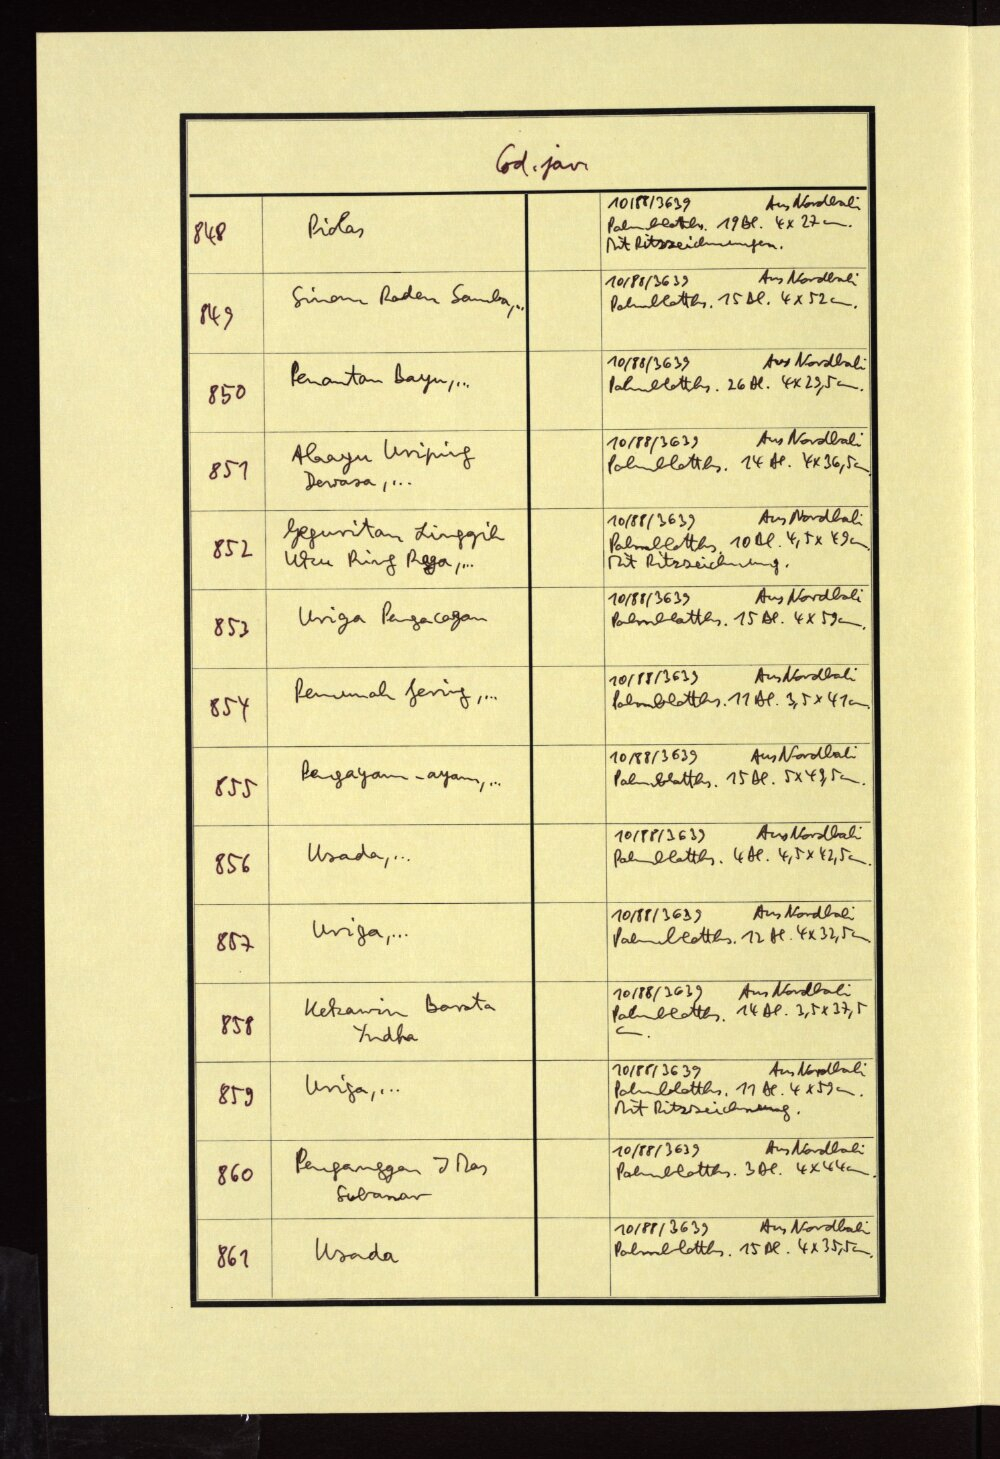 Cod. jav.
848 Pidas 10/88/3639 Aus Nordbali
Palmblatths. 19 Bl. 4 x 27 cm.
Mit Ritzzeichnungen.
849 Sinom Raden Samba,... 10/88/3639 Aus Nordbali
Palmblatths. 15 Bl. 4 x 52 cm.
850 Penantan Bayu,... 10/88/3639 Aus Nordbali
Palmblatths. 26 Bl. 4 x 29,5 cm.
851 Alaayu Uriping 10/88/3639 Aus Nordbali
Dewasa,... Palmblatths. 14 Bl. 4 x 36,5 cm
852 Geguritan Linggih 10/88/3639 Aus Nordbali
Utku Ring Raga,... Palmblatths. 10 Bl. 4,5 x 49 cm.
Mit Ritzzeichnung.
853 Uriga Pengacagan 10/88/3639 Aus Nordbali
Palmblatths. 15 Bl. 4 x 59 cm.
854 Penumah Gering,... 10/88/3639 Aus Nordbali
Palmblatths. 11 Bl. 3,5 x 41 cm
855 Pengayam-ayam,... 10/88/3639 Aus Nordbali
Palmblatths. 15 Bl. 5 x 49,5 cm.
856 Usada,... 10/88/3639 Aus Nordbali
Palmblatths. 4 Bl. 4,5 x 42,5 cm.
857 Uriga,... 10/88/3639 Aus Nordbali
Palmblatths. 12 Bl. 4 x 32,5 cm
858 Kekawin Barata 10/88/3639 Aus Nordbali
Yudha Palmblatths. 14 Bl. 3,5 x 37,5
cm.
859 Uriga,... 10/88/3639 Aus Nordbali
Palmblatths. 11 Bl. 4 x 59 cm.
Mit Ritzzeichnung.
860 Penganggan I Mas 10/88/3639 Aus Nordbali
Subanar Palmblatths. 3 Bl. 4 x 44 cm.
861 Usada 10/88/3639 Aus Nordbali
Palmblatths. 15 Bl. 4 x 35,5 cm.